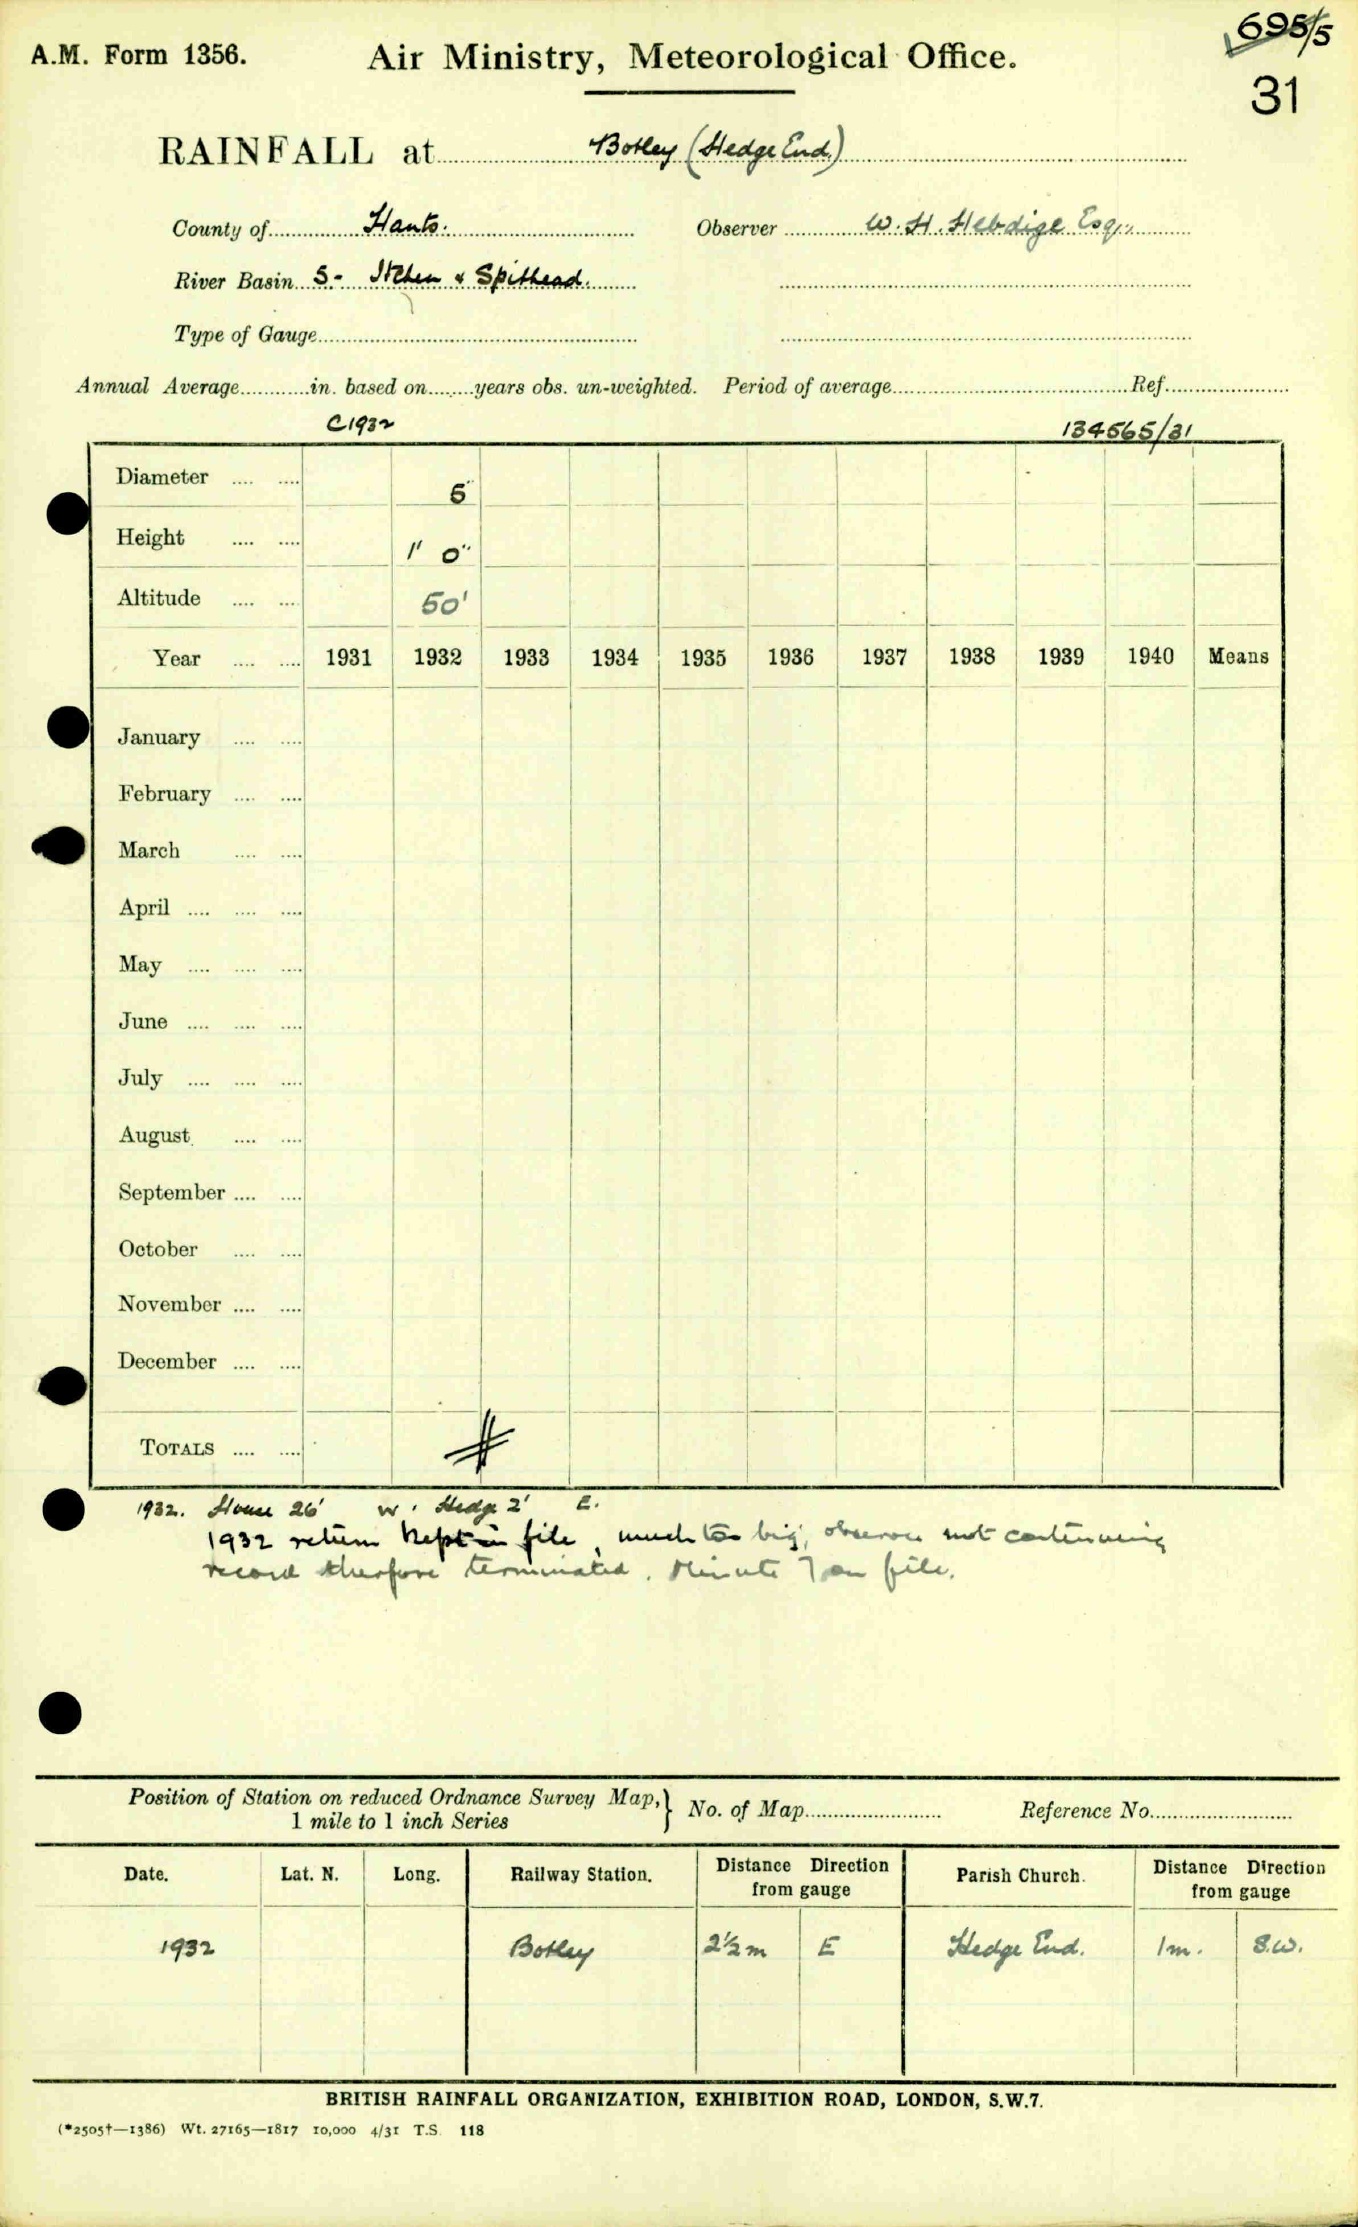 A.M. Form 1356.
Air Ministry, Meteorological Office.
695/5
31
RAINFALL at Botley (Hedge End)
County of Hants. Observer W. H. Hebdige Esq.,
River Basin 5- Itchen & Spithead.
Type of Gauge
Annual Average in. based on years obs. un-weighted. Period of average Ref.
C1932 134565/31
Diameter .... .... 5"
Height .... .... 1' 0"
Altitude .... .... 50'
Year .... .... 1931 1932 1933 1934 1935 1936 1937 1938 1939 1940 Means
January .... ....
February .... ....
March .... ....
April .... .... ....
May .... .... ....
June .... .... ....
July .... .... ....
August .... ....
September .... ....
October .... ....
November .... ....
December .... ....
TOTALS .... ....
1932. House 26' W. Hedge 2' E.
1932 return kept in file, much too big, observer not continuing
record therefore terminated. Minute 7 on file.
Position of Station on reduced Ordnance Survey Map,} No. of Map Reference No.
1 mile to 1 inch Series
Date. Lat. N. Long. Railway Station. Distance Direction from gauge Parish Church. Distance Direction from gauge
1932 Botley 2½ m E Hedge End. 1m. S.W.
BRITISH RAINFALL ORGANIZATION, EXHIBITION ROAD, LONDON, S.W.7.
(*2505†—1386) Wt. 27165—1817 10,000 4/31 T.S. 118